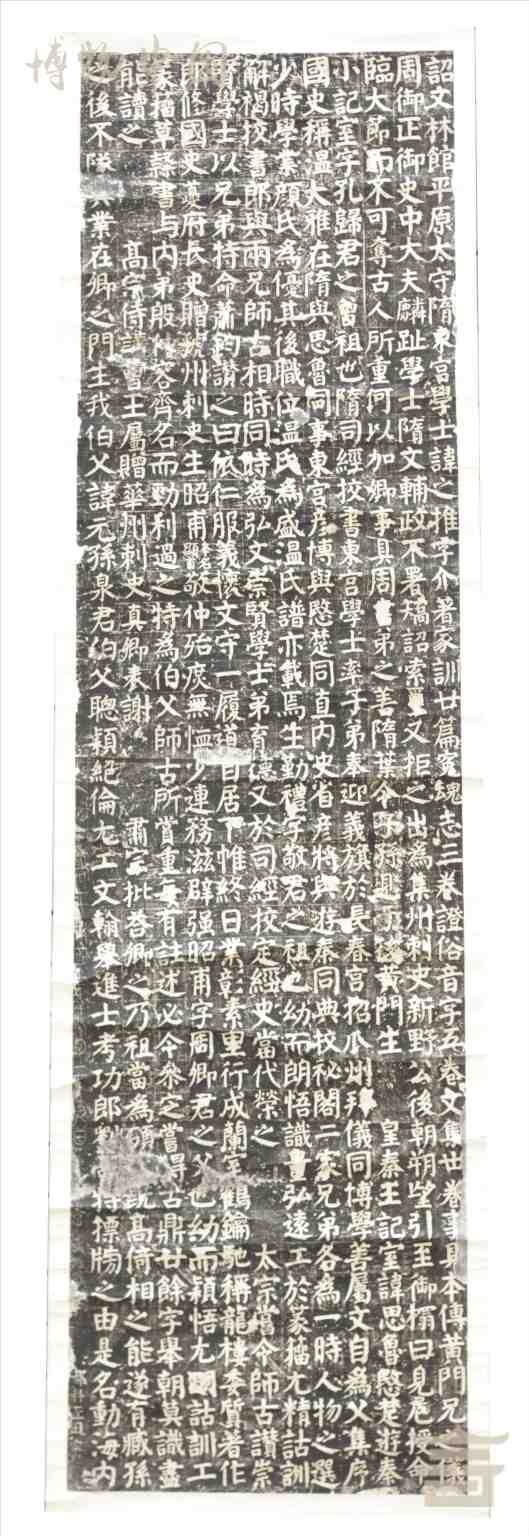 詔文林館平原太守隋東宮學士諱之推字介著家訓廿篇冤魂志三卷證俗音字五卷文集卅卷事具本傳黃門兄之儀
周御正御史中大夫麟趾學士隋文輔政不署矯詔索璽又拒之出為集州刺史新野公後朝朔望引至御榻曰見危授命
臨大節而不可奪古人所重何以加卿事具周書弟之善隋葉令子孫黃門生 皇秦王記室諱思魯愍楚遊秦
小記室字孔歸君之曾祖也隋司經校書東宮學士率子弟奉迎義旗於長春宮招瓜州拜儀同博學善屬文自為父集序
國史稱溫大雅在隋與思魯同事東宮彥博與愍楚同直內史省彥將與遊秦同典校祕閣二家兄弟各為一時人物之選
少時學業顏氏為優其後職位溫氏為盛溫氏譜亦載焉生勤禮字敬君之祖也幼而朗悟識量弘遠工於篆籀尤精詁訓
解褐校書郎與兩兄師古相時同時為弘文崇賢學士弟育德又於司經校定經史當代榮之 太宗嘗令師古讚崇
賢學士以兄弟特命蕭鈞讚之曰依仁服義懷文守一履道自居下帷終日業彰素里行成蘭室鶴鑰馳稱龍樓委質著作
郎修國史夔府長史贈虢州刺史生昭甫敬仲殆庶無恤少連務滋辟强昭甫字周卿君之父也幼而穎悟尤明詁訓工
篆籀草隸書与內弟殷仲容齊名而勁利過之特為伯父師古所賞重每有註述必令參定嘗得古鼎廿餘字舉朝莫識盡
能讀之 高宗侍讀曹王屬贈華州刺史真卿表謝 肅宗批答卿之乃祖當為碩儒既高倚相之能遂有臧孫
之後不墜其業在卿之門生我伯父諱元孫泉君伯父聰穎絕倫尤工文翰舉進士考功郎劉特標牓之由是名動海內